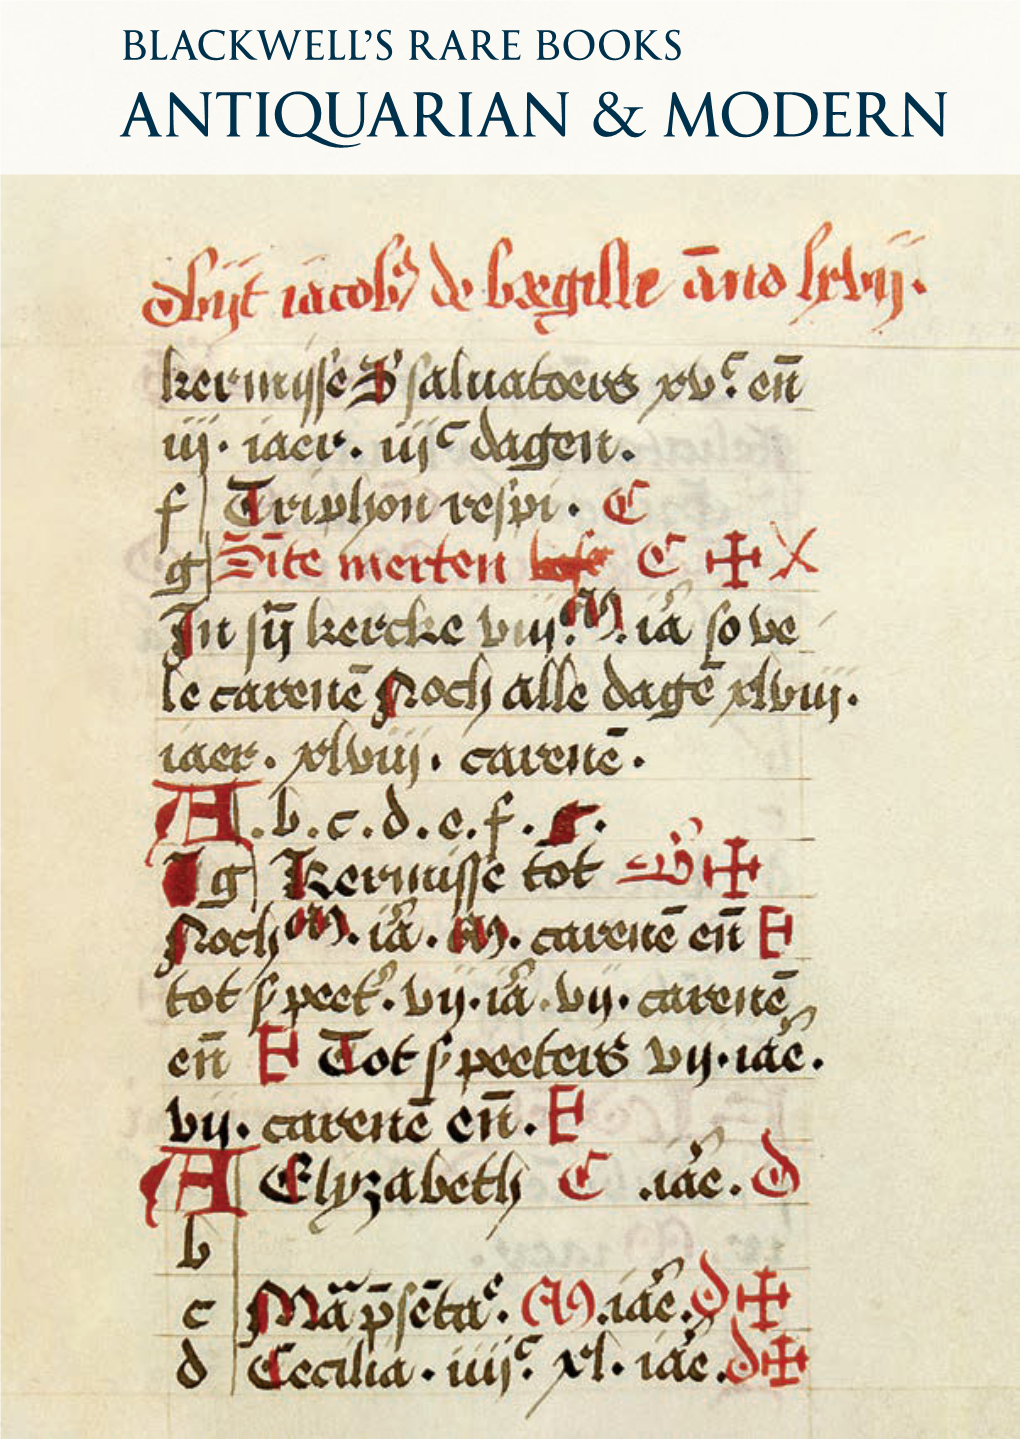 BLACKWELL'S RARE BOOKS
ANTIQUARIAN & MODERN
Obijt iacob de bægille āno lxvij.
kermisse S saluatoers xvᶜ. en̄
iij. iaer. iijᶜ dagen.
f Triphon respi. C
g Sīte merten C ✠ X
In sij̄ kercke viij. M. iā so ve
le carenē Noch alle dagē xlviij.
iaer. xlviij. carenē.
A. b. c. d. e. f. g.
g Kermisse tot ✠
Noch M. iā. M. carenē en̄ E
tot s peet. vij. iā. vij. carenē
en̄ E Tot s peeters vij. iaē.
vij. carenē en̄. E
A Elyzabeth C .iaē. d
b
c Mā p̄sētaᵉ. M. iaē. d ✠
d Cecilia. iiijᶜ. xl. iaē. d ✠